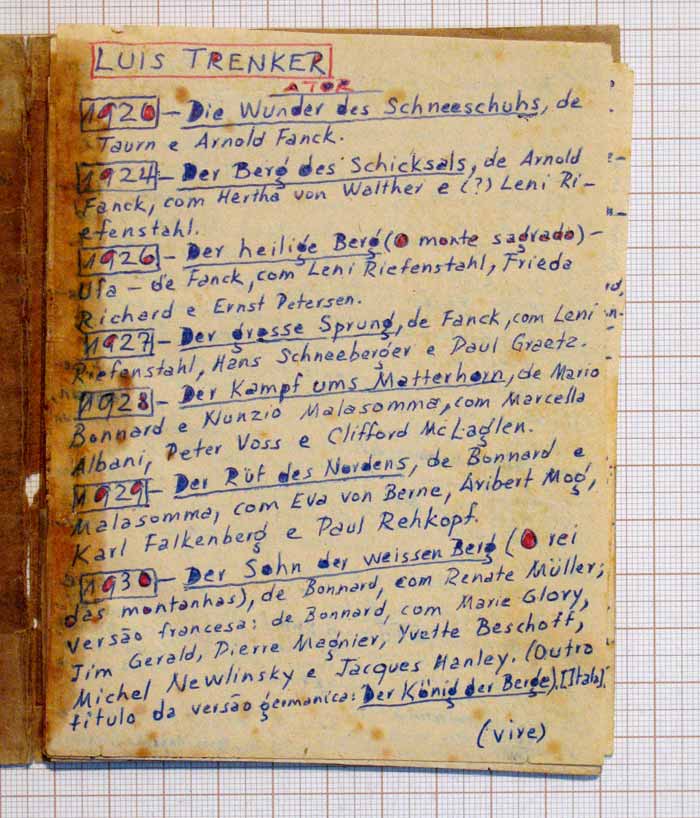 LUIS TRENKER
ATOR
1920 - Die Wunder des Schneeschuhs, de
Taurn e Arnold Fanck.
1924 - Der Berg des Schicksals, de Arnold
Fanck, com Hertha von Walther e (?) Leni Ri-
efenstahl.
1926 - Der heilige Berg (O monte sagrado) -
Ufa - de Fanck, com Leni Riefenstahl, Frieda
Richard e Ernst Petersen.
1927 - Der grosse Sprung, de Fanck, com Leni
Riefenstahl, Hans Schneeberger e Paul Graetz.
1928 - Der Kampf ums Matterhorn, de Mario
Bonnard e Nunzio Malasomma, com Marcella
Albani, Peter Voss e Clifford McLaglen.
1929 - Der Rüf des Nordens, de Bonnard e
Malasomma, com Eva von Berne, Aribert Mog,
Karl Falkenberg e Paul Rehkopf.
1930 - Der Sohn der weissen Berg (O rei
das montanhas), de Bonnard, com Renate Müller;
versão francesa: de Bonnard, com Marie Glory,
Jim Gerald, Pierre Magnier, Yvette Beschoff,
Michel Newlinsky e Jacques Hanley. (Outro
título da versão germanica: Der König der Berge).
(vive)